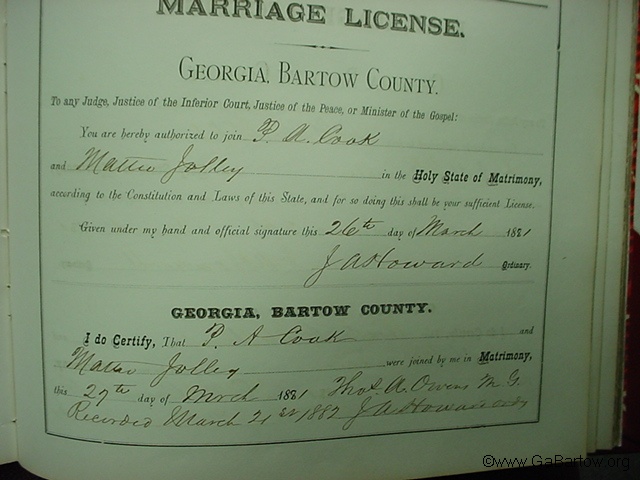 MARRIAGE LICENSE.
GEORGIA, BARTOW COUNTY.
To any Judge, Justice of the Inferior Court, Justice of the Peace, or Minister of the Gospel:
You are hereby authorized to join P. A. Cook
and Mattie Jolley in the Holy State of Matrimony,
according to the Constitution and Laws of this State, and for so doing this shall be your sufficient License.
Given under my hand and official signature this 26th day of March 1881
J A Howard Ordinary.
GEORGIA, BARTOW COUNTY.
I do Certify, That P. A Cook and
Mattie Jolley were joined by me in Matrimony,
this 27th day of Mrch 1881 Thos. A. Owens M. G.
Recorded March 21st 1882 J A Howard ordy
©www.GaBartow.org